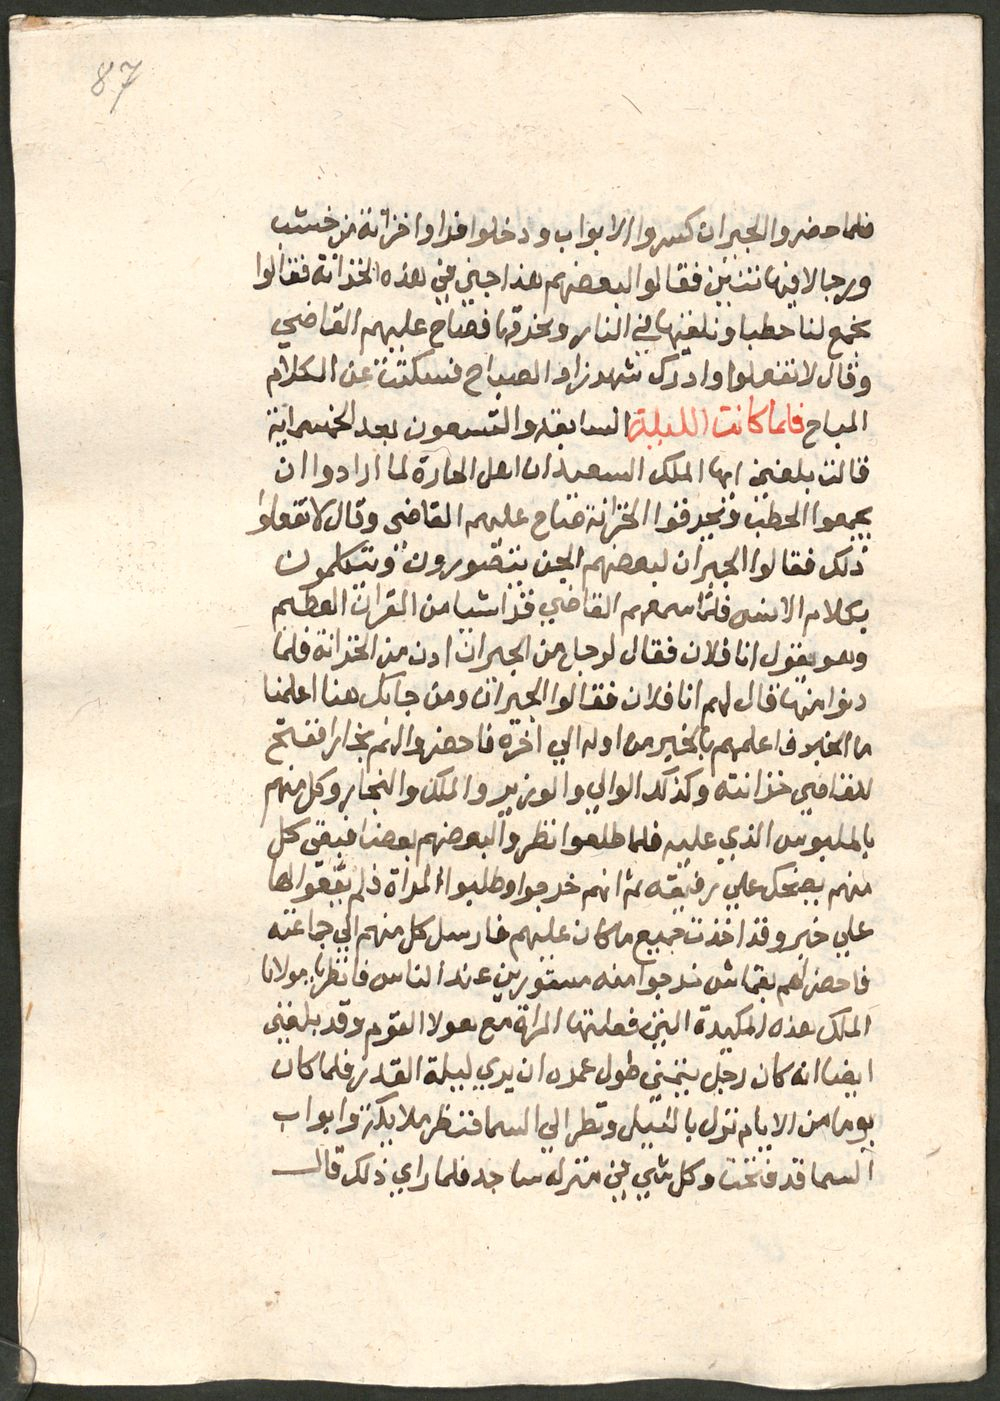 87
فلما حضروا الجيران كسروا الابواب ودخلوا فراوا خزانة من خشب
ورجالا فيها تئن فقالوا لبعضهم هذا جني في هذه الخزانة فقالوا
نجمع لنا حطبا ونلقيها في النار ونحرقها فصاح عليهم القاضي
وقال لا تفعلوا وادرك شهرزاد الصباح فسكتت عن الكلام
المباح فلما كانت الليلة السابعة والتسعون بعد الخمسماية
قالت بلغني ايها الملك السعيد ان اهل الحارة لما ارادوا ان
يجمعوا الحطب ويحرقوا الخزانة صاح عليهم القاضي وقال لا تفعلوا
ذلك فقالوا الجيران لبعضهم الجن يتصورون ويتكلمون
بكلام الانس فلما سمعهم القاضي قرا شيا من القران العظيم
وهو يقول انا فلان فقال لرجل من الجيران ادن من الخزانة فلما
دنوا منها قال لهم انا فلان فقالوا الجيران ومن جابك هنا اعلمنا
ما الخبر فاعلمهم بالخبر من اوله الي اخره فاحضروا لهم نجارا ففتح
للقاضي خزانته وكذلك الوالي والوزير والملك والنجار وكل منهم
بالملبوس الذي عليه فلما طلعوا نظروا لبعضهم بعضا فبقي كل
منهم يضحك علي رفيقه ثم انهم خرجوا وطلبوا المراة فلم يقعوا لها
علي خبر وقد اخذت جميع ما كان عليهم فارسل كل منهم الي جماعته
فاحضر لهم بقماش خرجوا منه مستورين عند الناس فانظر يا مولانا
الملك هذه المكيدة التي فعلتها المراة مع هولا القوم وقد بلغني
ايضا انه كان رجل يتمني طول عمره ان يري ليلة القدر فلما كان
يوما من الايام نزل بالليل ونظر الي السما فنظر ملايكة وابواب
السما قد فتحت وكل شي في منزله ساجد فلما راي ذلك قال